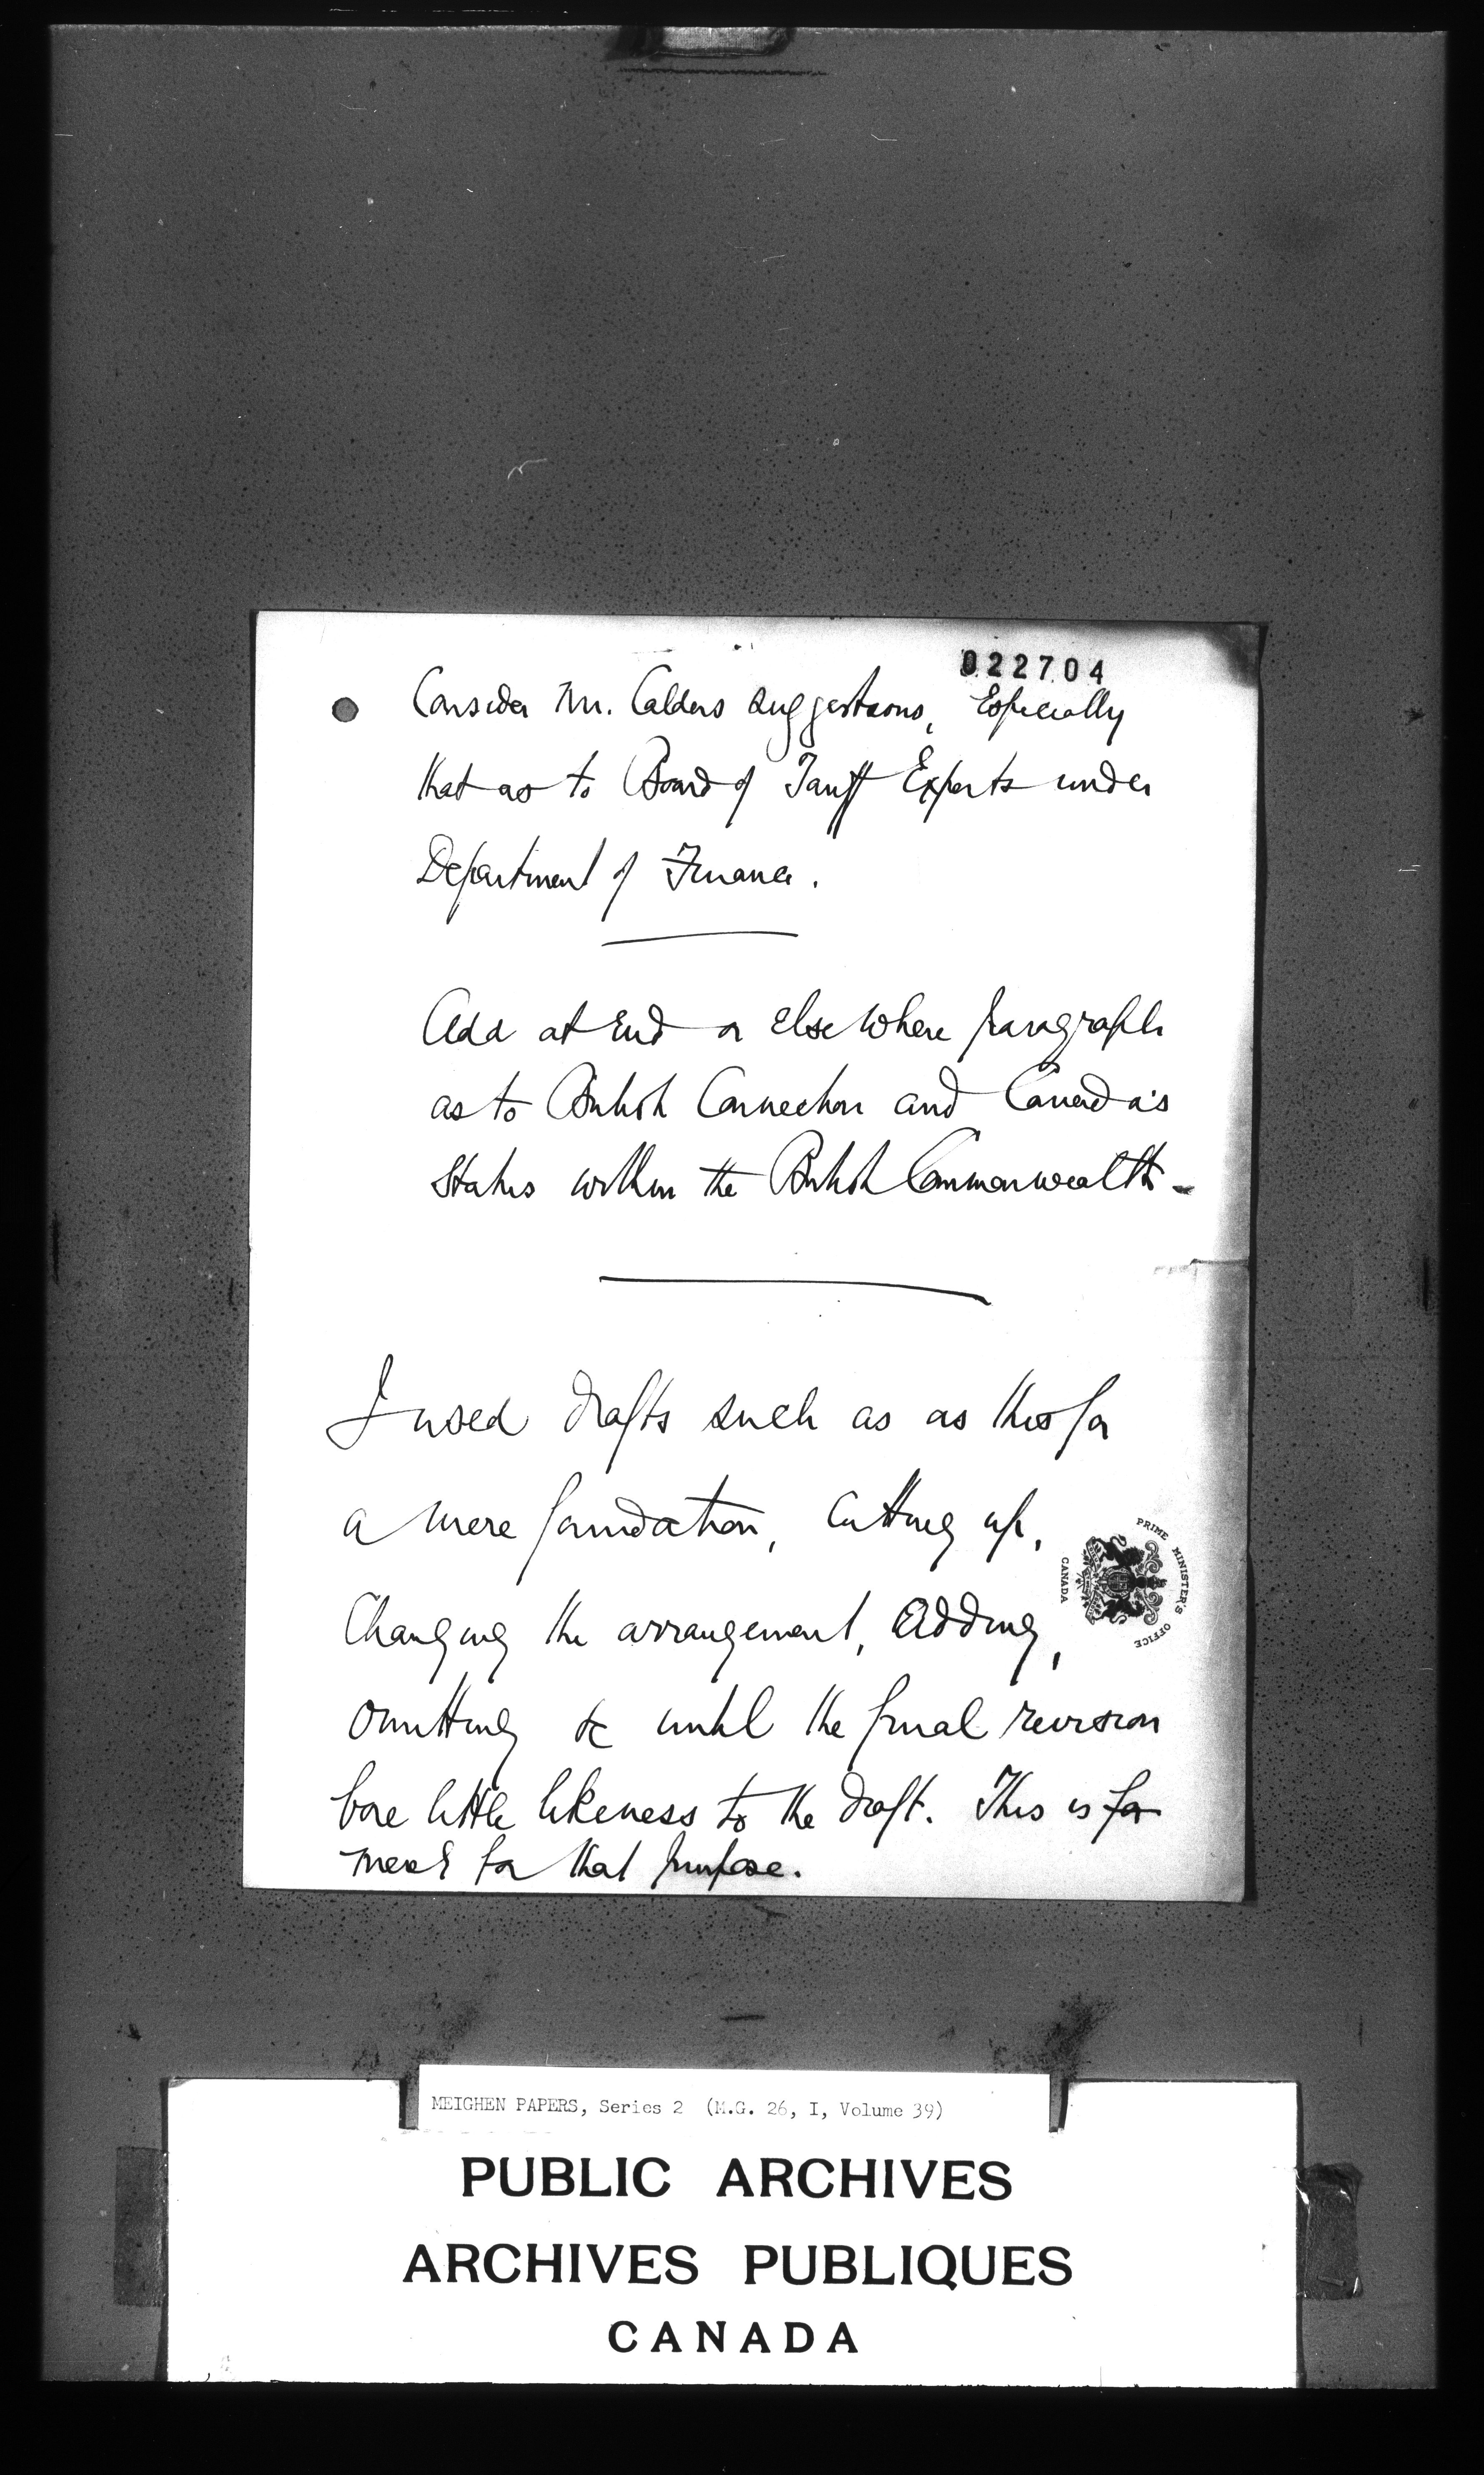 022704
Consider Mr. Calders suggestions, Especially
that as to Board of Tariff Experts under
Department of Finance.
Add at End or Elsewhere paragraph
as to British Connection and Canada's
Status within the British Commonwealth -
I used drafts such as as this for
a mere foundation, Cutting up,
Changing the arrangement, Adding,
omitting &c until the final revision
bore little likeness to the draft. This is for
for that purpose.
PRIME MINISTER'S OFFICE
CANADA
MEIGHEN PAPERS, Series 2 (M.G. 26, I, Volume 39)
PUBLIC ARCHIVES
ARCHIVES PUBLIQUES
CANADA